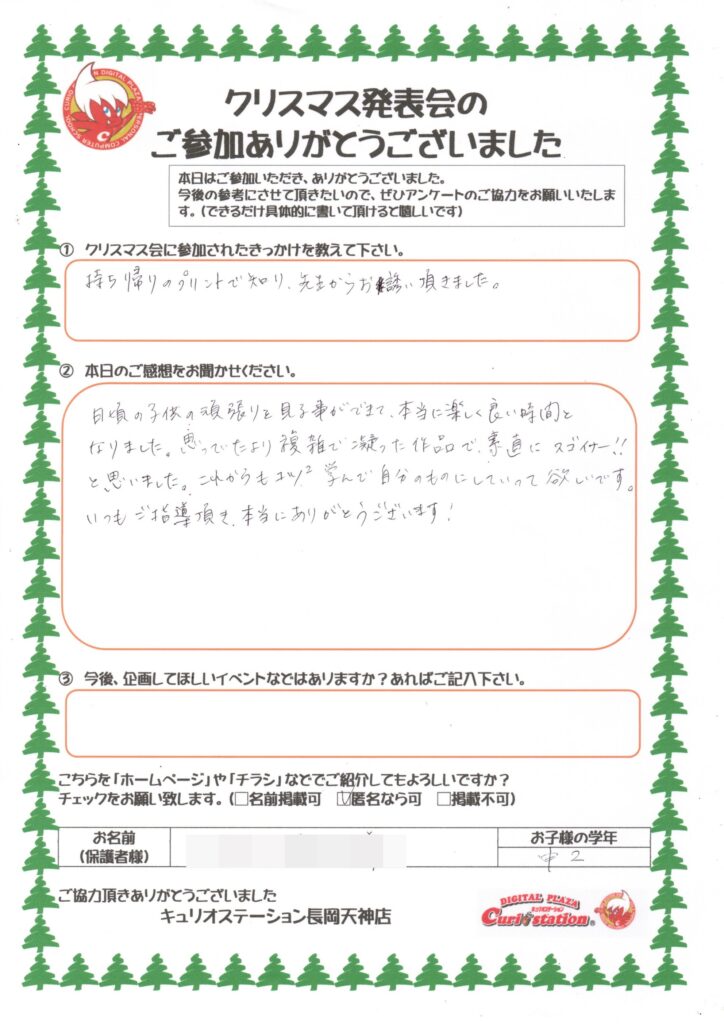 クリスマス発表会の
ご参加ありがとうございました
本日はご参加いただき、ありがとうございました。
今後の参考にさせて頂きたいので、ぜひアンケートのご協力をお願いいたしま
す。(できるだけ具体的に書いて頂けると嬉しいです)
① クリスマス会に参加されたきっかけを教えて下さい。
持ち帰りのプリントで知り、先生からお誘い頂きました。
② 本日のご感想をお聞かせください。
日頃の子供の頑張りを見る事ができて、本当に楽しく良い時間と
なりました。思ってたより複雑で凝った作品で、素直にスゴイナー!!
と思いました。これからもコツ2学んで自分のものにしていって欲しいです。
いつもご指導頂き、本当にありがとうございます!
③ 今後、企画してほしいイベントなどはありますか?あればご記入下さい。
こちらを「ホームページ」や「チラシ」などでご紹介してもよろしいですか?
チェックをお願い致します。(□名前掲載可 ☑匿名なら可 □掲載不可)
お名前
(保護者様)
お子様の学年
中2
ご協力頂きありがとうございました
キュリオステーション長岡天神店
DIGITAL PLAZA
キュリオステーション
Curio station